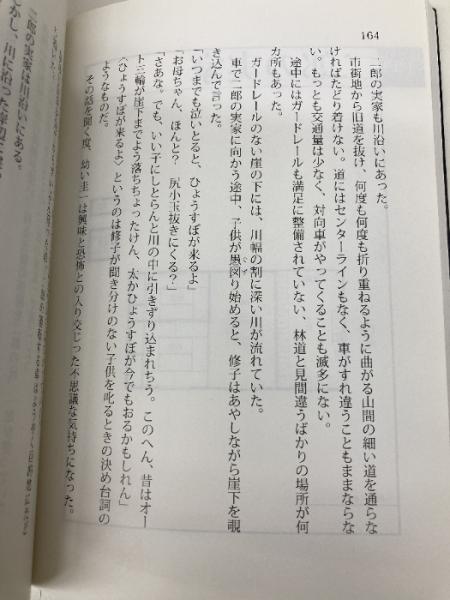 164
二郎の実家も川沿いにあった。
市街地から旧道を抜け、何度も何度も折り重ねるように曲がる山間の細い道を通らな
ければたどり着けない。道にはセンターラインもなく、車がすれ違うこともままならな
い。もっとも交通量は少なく、対向車がやってくることも滅多にない。
途中にはガードレールも満足に整備されていない、林道と見間違うばかりの場所が何
カ所もあった。
ガードレールのない崖の下には、川幅の割に深い川が流れていた。
車で二郎の実家に向かう途中、子供が愚図り始めると、修子はあやしながら崖下を覗
き込んで言った。
「いつまでも泣いとると、ひょうすぼが来るよ」
「お母ちゃん、ほんと? 尻小玉抜きにくる?」
「さあな。でも、いい子にしとらんと川の中に引きずり込まれちう。このへん、昔はオー
ト三輪が崖下までよう落ちちょったけん、太かひょうすぼが今でもおるかもしれん」
〈ひょうすぼが来るよ〉というのは修子が聞き分けのない子供を叱るときの決め台詞の
ようなものだ。
その話を聞く度、幼い圭一は興味と恐怖との入り交じった不思議な気持ちになった。
二郎の実家は川沿いにある。